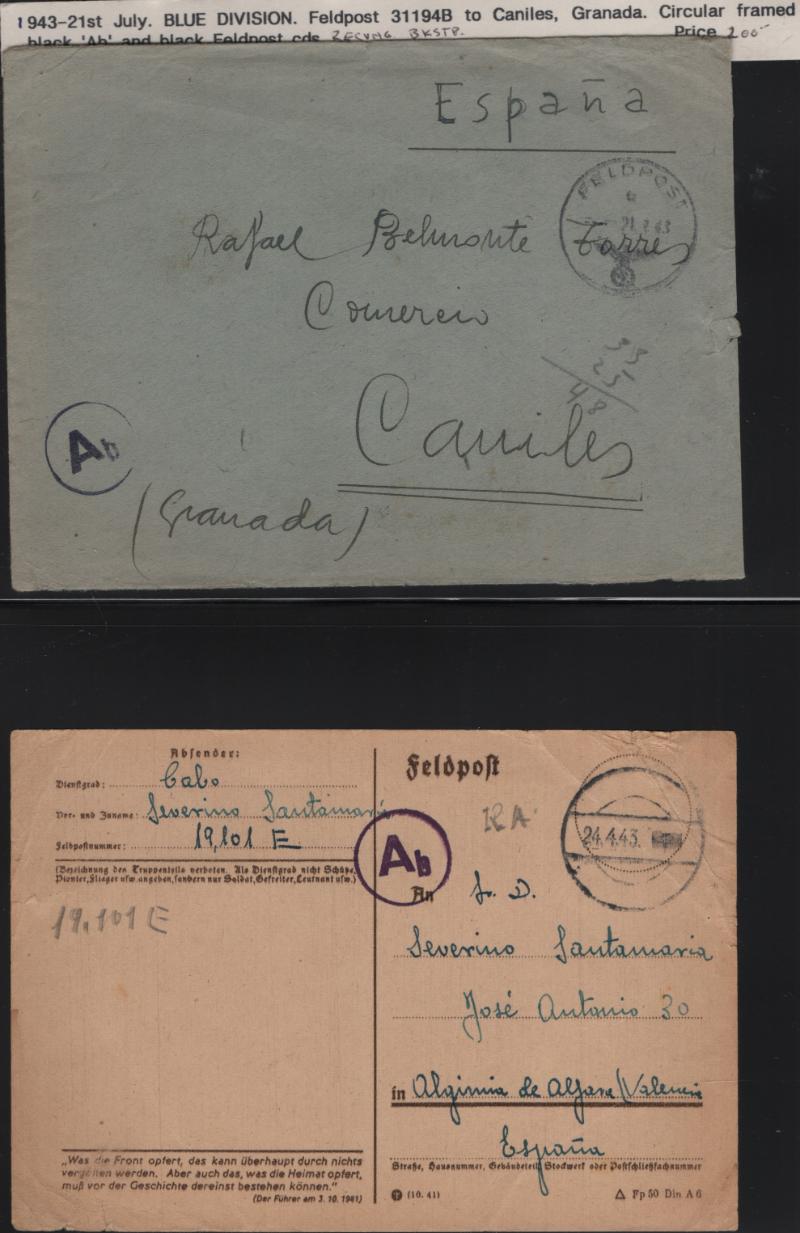 1943-21st July. BLUE DIVISION. Feldpost 31194B to Caniles, Granada. Circular framed
black 'Ab' and black Feldpost cds Price 200
España
FELDPOST
21.7.43
Rafael Belmonte Torres
Comercio
Caniles
(Granada)
Ab
Absender:
Dienstgrad: Cabo
Vor- und Zuname: Severino Santamaría
Feldpostnummer: 19,101 E
(Bezeichnung des Truppenteils verboten. Als Dienstgrad nicht Schütze,
Pionier, Flieger usw. angeben, sondern nur Soldat, Gefreiter, Leutnant usw.)
19.101 E
„Was die Front opfert, das kann überhaupt durch nichts
vergolten werden. Aber auch das, was die Heimat opfert,
muß vor der Geschichte dereinst bestehen können.“
(Der Führer am 3. 10. 1941)
Feldpost
Ab
24.4.43.
An Sr. D.
Severino Santamaria
José Antonio 30
in Algimia de Alfara/Valencia
España
Straße, Hausnummer, Gebäudeteil, Stockwerk oder Postschließfachnummer
(10. 41)
Fp 50 Din A 6